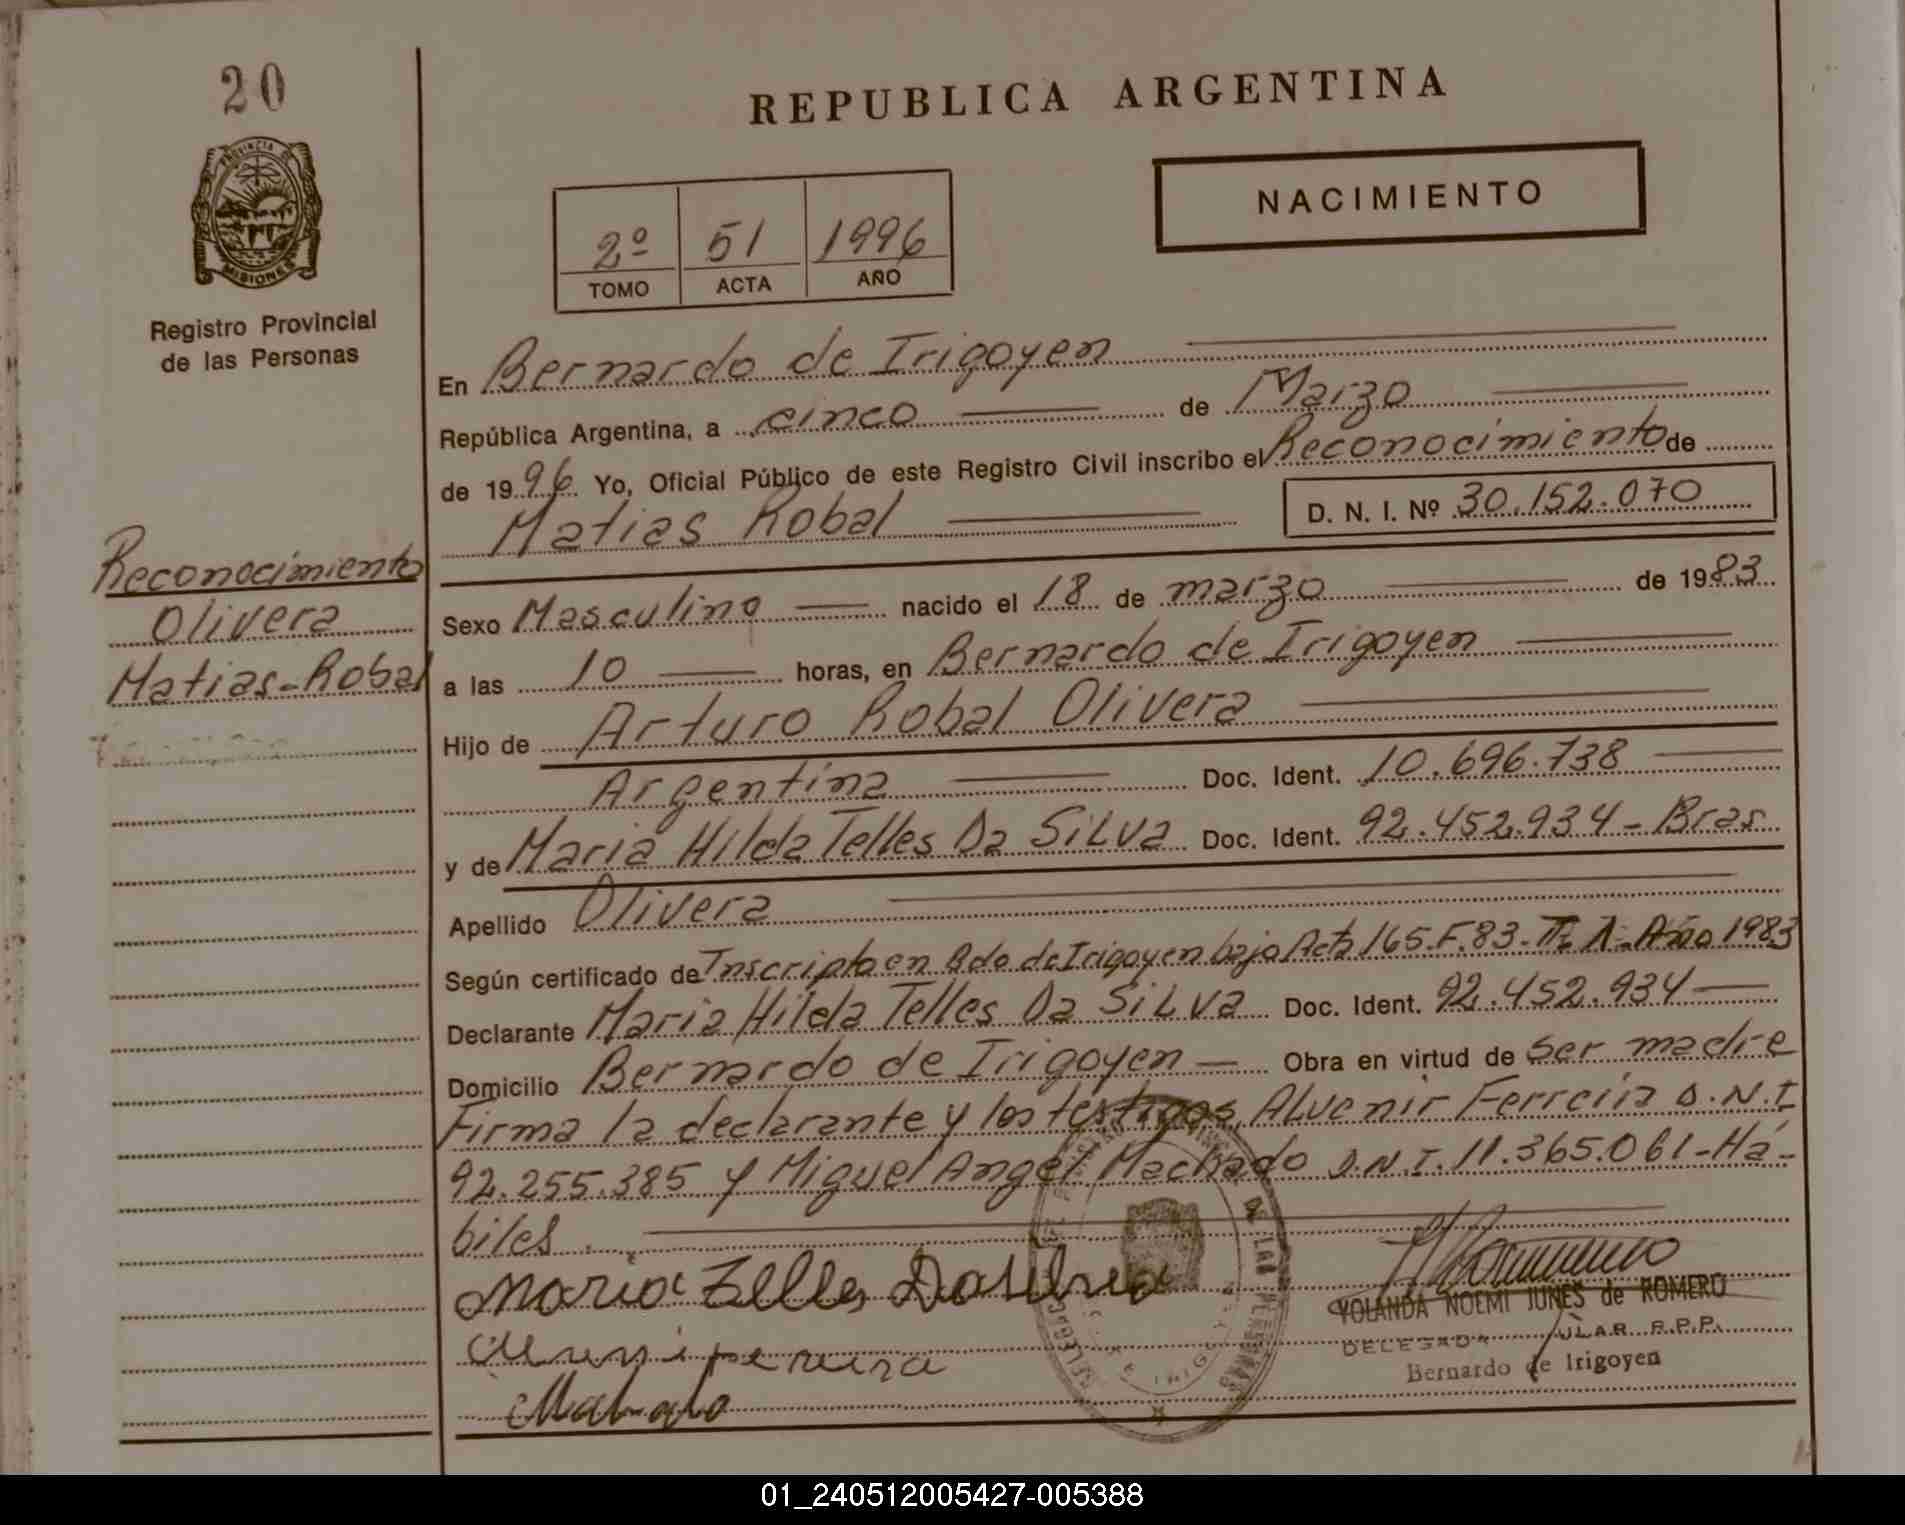 20
PROVINCIA DE
MISIONES
Registro Provincial
de las Personas
REPUBLICA ARGENTINA
NACIMIENTO
2º 51 1996
TOMO ACTA AÑO
En Bernardo de Irigoyen
República Argentina, a cinco de Marzo
de 1996 Yo, Oficial Público de este Registro Civil inscribo el Reconocimiento de
Matias Robal D. N. I. Nº 30.152.070
Reconocimiento
Olivera
Matias-Robal
Sexo Masculino nacido el 18 de marzo de 1983
a las 10 horas, en Bernardo de Irigoyen
Hijo de Arturo Robal Olivera
Argentina Doc. Ident. 10.696.738
y de Maria Hilda Telles Da SiLVa Doc. Ident. 92.452.934 - Bras
Apellido Olivera
Según certificado de Inscripto en Bdo de Irigoyen bajo Acta 165.F.83. Tº 1- Año 1983
Declarante Maria Hilda Telles Da SiLVa Doc. Ident. 92.452.934
Domicilio Bernardo de Irigoyen Obra en virtud de ser madre
Firma la declarante y los testigos, ALvenir Ferreira D.N.I
92.255.385 y Miguel Angel Machado D.N.I. 11.365.061-Há-
biles.
Maria Telles Da Silva
YOLANDA NOEMI JUNES de ROMERO
R.P.P.
Bernardo de Irigoyen
DE LAS PERSONAS
01_240512005427-005388